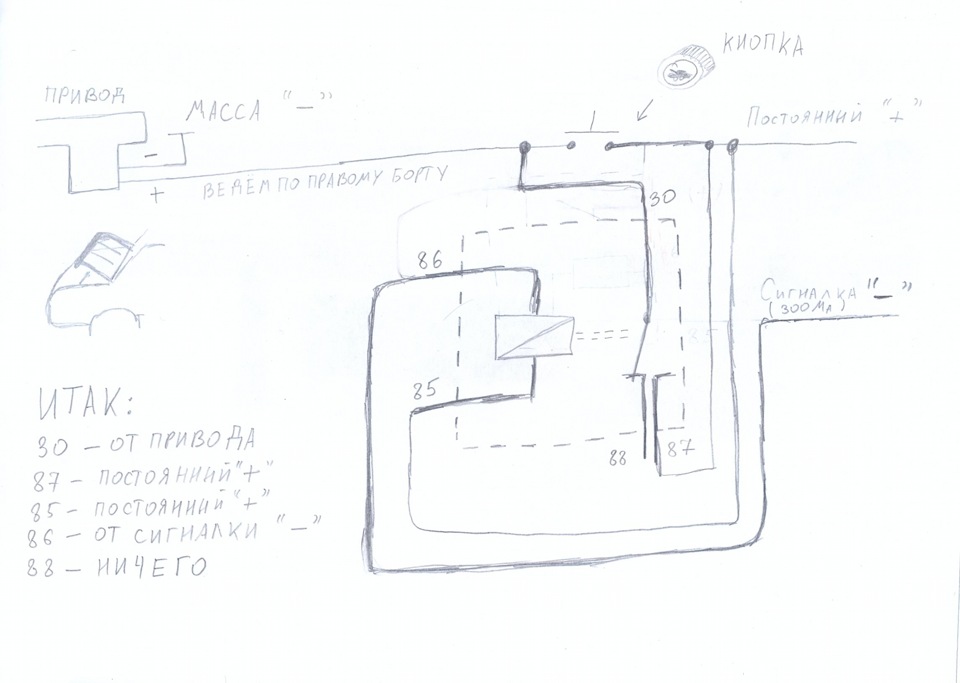 КНОПКА
ПРИВОД
МАССА "—"
ПОСТОЯННИЙ "+"
—
+
ВЕДЁМ ПО ПРАВОМУ БОРТУ
30
86
СИГНАЛКА "—"
(300МА)
85
88
87
ИТАК:
30 — ОТ ПРИВОДА
87 — ПОСТОЯННИЙ "+"
85 — ПОСТОЯННИЙ "+"
86 — ОТ СИГНАЛКИ "—"
88 — НИЧЕГО